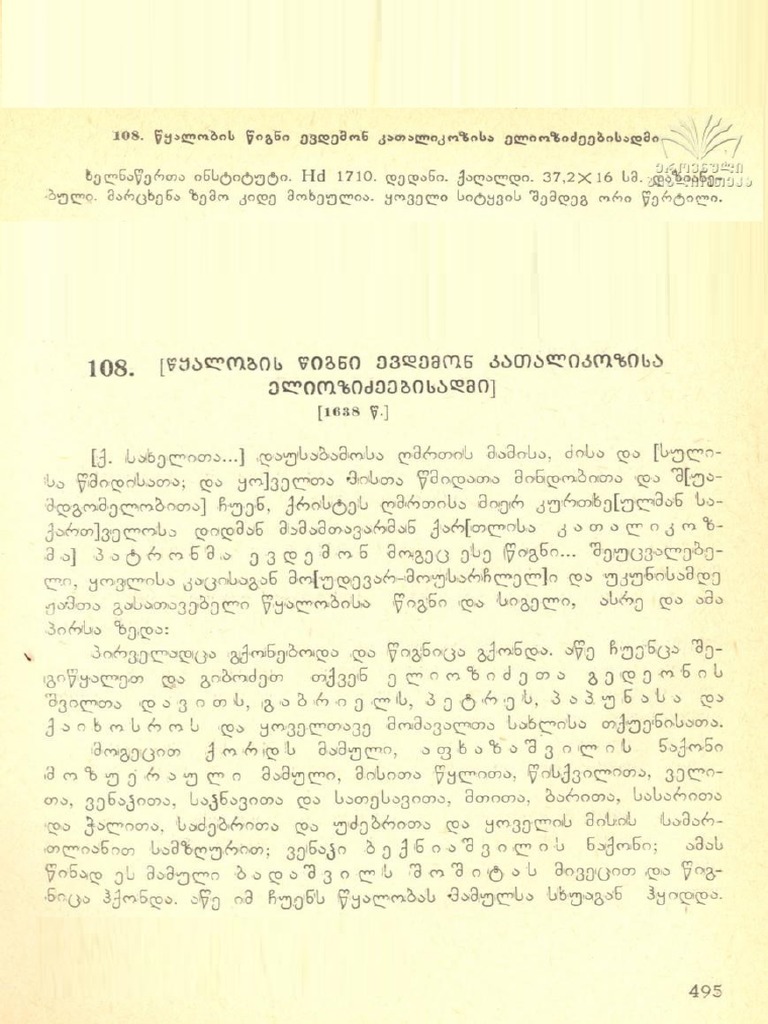 108. წყალობის წიგნი ევდემონ კათალიკოზისა ელიოზიძეებისადმი
ეროვნული
ბიბლიოთეკა
ხელნაწერთა ინსტიტუტი. Hd 1710. დედანი. ქაღალდი. 37,2×16 სმ. დაზიანე-
ბული. მარცხენა ზემო კიდე მოხეულია. ყოველი სიტყვის შემდეგ ორი წერტილი.
108. [წყალობის წიგნი ევდემონ კათალიკოზისა
ელიოზიძეებისადმი]
[1638 წ.]
[ქ. სახელითა...] დაუსაბამოსა ღმრთის მამისა, ძისა და [სული-
სა წმიდისათა; და ყო]ველთა მისთა წმიდათა მინდობითა და შ[უა-
მდგომელობითა] ჩუენ, ქრისტეს ღმრთისა მიერ კურთხე[ულმან სა-
ქართ]ველოსა დიდმან მამამთავარმან ქარ[თლისა კათალიკოზ-
მა] პატრონმა ევდემონ მოგეც ესე წიგნი... შეუცვალებე-
ლი, ყოვლისა კაცისაგან მო[უდევარ-მოუსარჩლელ]ი და უკუნისამდე
ჟამთა გასათავებელი წყალობისა წიგნი და სიგელი, ასრე და ამა
პირსა ზედა:
პირველადცა გქონებოდა და წიგნიცა გქონდა. აწე ჩუენცა შე-
გიწყალეთ და გიბოძეთ თქვენ ელიოზიძეთა გედეონის
შვილთა დავითს, გაბრიელს, პეტრეს, პაპუნასა და
ქაიხოსროს და ყოველთავე მომავალთა სახლისა თქუენისათა.
მოგეცით ქორდს მამული, აფხაზაშვილის ნაქონი
მოზუერაული მამული, მისითა წყლითა, წისქვილითა, ველი-
თა, ვენაჴითა, საჴნავითა და სათესავითა, მთითა, ბარითა, სასარითა
და ჭალითა, საძებრითა და უძებრითა და ყოველის მისის სამარ-
თლიანით სამზღურით; ვენაჴი ბექნიაშვილის ნაქონი; ამას
წინად ეს მამული ბადაშვილს შოშიტას მივეცით და წიგ-
ნიცა ჰქონდა. აწე იმ ჩუენს წყალობას მამულსა სხუაგან ჰყიდდა.
495